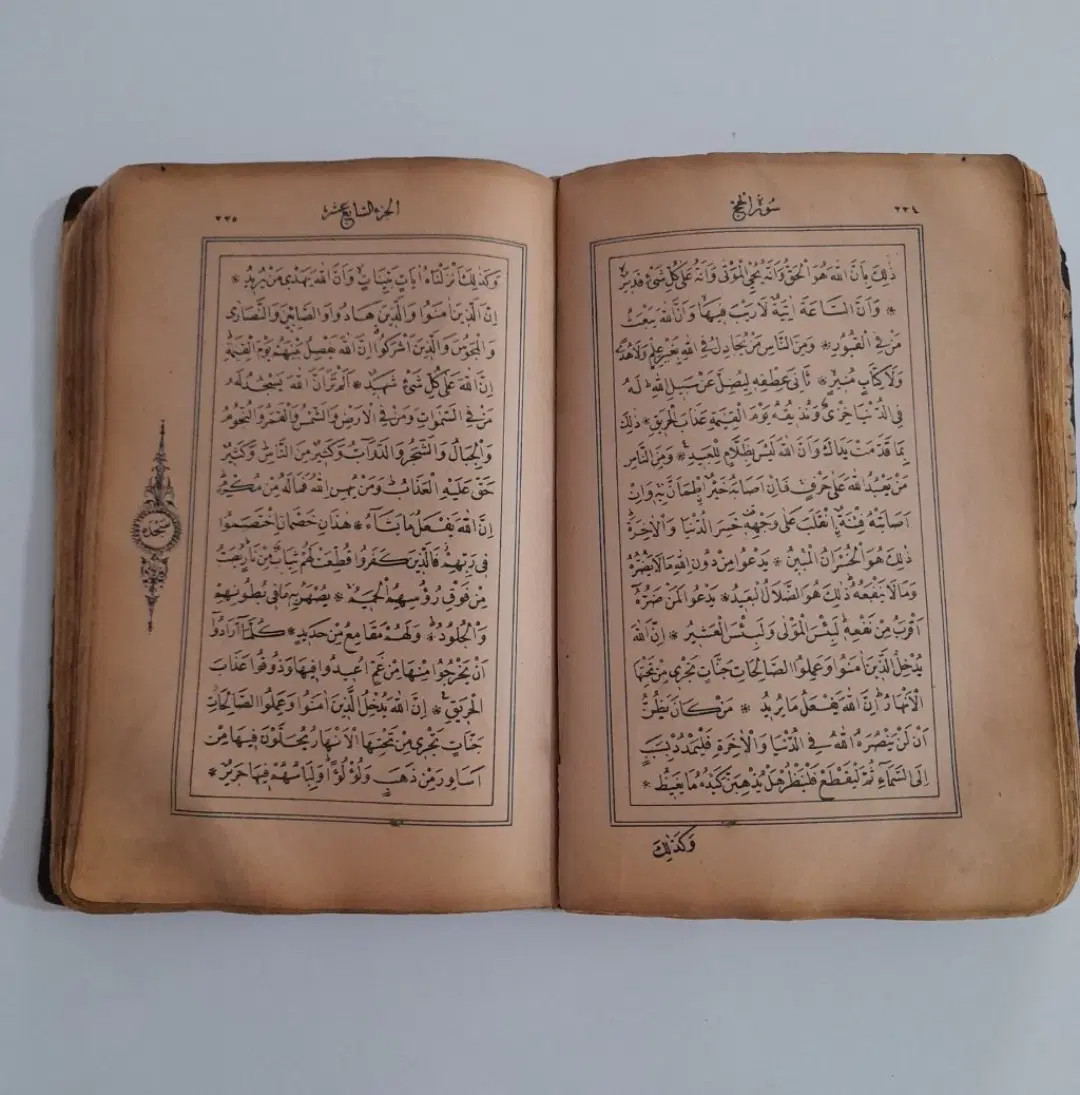 سورة الحج
٣٣٤
ذٰلِكَ بِاَنَّ اللّٰهَ هُوَ الْحَقُّ وَاَنَّهُ يُحْيِ الْمَوْتٰى وَاَنَّهُ عَلٰى كُلِّ شَىْءٍ قَدِيرٌۙ
* وَاَنَّ السَّاعَةَ اٰتِيَةٌ لَارَيْبَ فِيهَاۙ وَاَنَّ اللّٰهَ يَبْعَثُ
مَنْ فِى الْقُبُورِ * وَمِنَ النَّاسِ مَنْ يُجَادِلُ فِى اللّٰهِ بِغَيْرِ عِلْمٍ وَلَا هُدًى
وَلَا كِتَابٍ مُنِيرٍۙ * ثَانِىَ عِطْفِهِ لِيُضِلَّ عَنْ سَبِيلِ اللّٰهِۜ لَهُ
فِى الدُّنْيَا خِزْىٌ وَنُذِيقُهُ يَوْمَ الْقِيٰمَةِ عَذَابَ الْحَرِيقِ * ذٰلِكَ
بِمَا قَدَّمَتْ يَدَاكَ وَاَنَّ اللّٰهَ لَيْسَ بِظَلَّامٍ لِلْعَبِيدِ * وَمِنَ النَّاسِ
مَنْ يَعْبُدُ اللّٰهَ عَلٰى حَرْفٍۚ فَاِنْ اَصَابَهُ خَيْرٌۨ اطْمَاَنَّ بِهِۚ وَاِنْ
اَصَابَتْهُ فِتْنَةٌۨ انْقَلَبَ عَلٰى وَجْهِهِ۠ خَسِرَ الدُّنْيَا وَالْاٰخِرَةَۜ
ذٰلِكَ هُوَ الْخُسْرَانُ الْمُبِينُ * يَدْعُوا مِنْ دُونِ اللّٰهِ مَالَا يَضُرُّهُ
وَمَا لَا يَنْفَعُهُۜ ذٰلِكَ هُوَ الضَّلَالُ الْبَعِيدُۚ * يَدْعُوا لَمَنْ ضَرُّهُ
اَقْرَبُ مِنْ نَفْعِهِۜ لَبِئْسَ الْمَوْلٰى وَلَبِئْسَ الْعَشِيرُ * اِنَّ اللّٰهَ
يُدْخِلُ الَّذِينَ اٰمَنُوا وَعَمِلُوا الصَّالِحَاتِ جَنَّاتٍ تَجْرِى مِنْ تَحْتِهَا
الْاَنْهَارُۜ اِنَّ اللّٰهَ يَفْعَلُ مَا يُرِيدُ * مَنْ كَانَ يَظُنُّ
اَنْ لَنْ يَنْصُرَهُ اللّٰهُ فِى الدُّنْيَا وَالْاٰخِرَةِ فَلْيَمْدُدْ بِسَبَبٍ
اِلَى السَّمَاءِ ثُمَّ لْيَقْطَعْ فَلْيَنْظُرْ هَلْ يُذْهِبَنَّ كَيْدُهُ مَا يَغِيظُ *
وَكَذٰلِكَ
الجزء السابع عشر
٣٣٥
وَكَذٰلِكَ اَنْزَلْنَاهُ اٰيَاتٍ بَيِّنَاتٍۙ وَاَنَّ اللّٰهَ يَهْدِى مَنْ يُرِيدُ *
اِنَّ الَّذِينَ اٰمَنُوا وَالَّذِينَ هَادُوا وَالصَّابِئِينَ وَالنَّصَارٰى
وَالْمَجُوسَ وَالَّذِينَ اَشْرَكُواۗ اِنَّ اللّٰهَ يَفْصِلُ بَيْنَهُمْ يَوْمَ الْقِيٰمَةِۜ
اِنَّ اللّٰهَ عَلٰى كُلِّ شَىْءٍ شَهِيدٌ * اَلَمْ تَرَ اَنَّ اللّٰهَ يَسْجُدُ لَهُ
مَنْ فِى السَّمٰوَاتِ وَمَنْ فِى الْاَرْضِ وَالشَّمْسُ وَالْقَمَرُ وَالنُّجُومُ
وَالْجِبَالُ وَالشَّجَرُ وَالدَّوَابُّ وَكَثِيرٌ مِنَ النَّاسِۜ وَكَثِيرٌ
حَقَّ عَلَيْهِ الْعَذَابُۜ وَمَنْ يُهِنِ اللّٰهُ فَمَا لَهُ مِنْ مُكْرِمٍۜ
اِنَّ اللّٰهَ يَفْعَلُ مَا يَشَاءُ * هٰذَانِ خَصْمَانِ اخْتَصَمُوا
فِى رَبِّهِمْۘ فَالَّذِينَ كَفَرُوا قُطِّعَتْ لَهُمْ ثِيَابٌ مِنْ نَارٍۜ يُصَبُّ
مِنْ فَوْقِ رُؤُسِهِمُ الْحَمِيمُۚ * يُصْهَرُ بِهِ مَا فِى بُطُونِهِمْ
وَالْجُلُودُۜ * وَلَهُمْ مَقَامِعُ مِنْ حَدِيدٍ * كُلَّمَا اَرَادُوا
اَنْ يَخْرُجُوا مِنْهَا مِنْ غَمٍّ اُعِيدُوا فِيهَا وَذُوقُوا عَذَابَ
الْحَرِيقِ * اِنَّ اللّٰهَ يُدْخِلُ الَّذِينَ اٰمَنُوا وَعَمِلُوا الصَّالِحَاتِ
جَنَّاتٍ تَجْرِى مِنْ تَحْتِهَا الْاَنْهَارُ يُحَلَّوْنَ فِيهَا مِنْ
اَسَاوِرَ مِنْ ذَهَبٍ وَلُؤْلُؤًاۜ وَلِبَاسُهُمْ فِيهَا حَرِيرٌ *
سجده